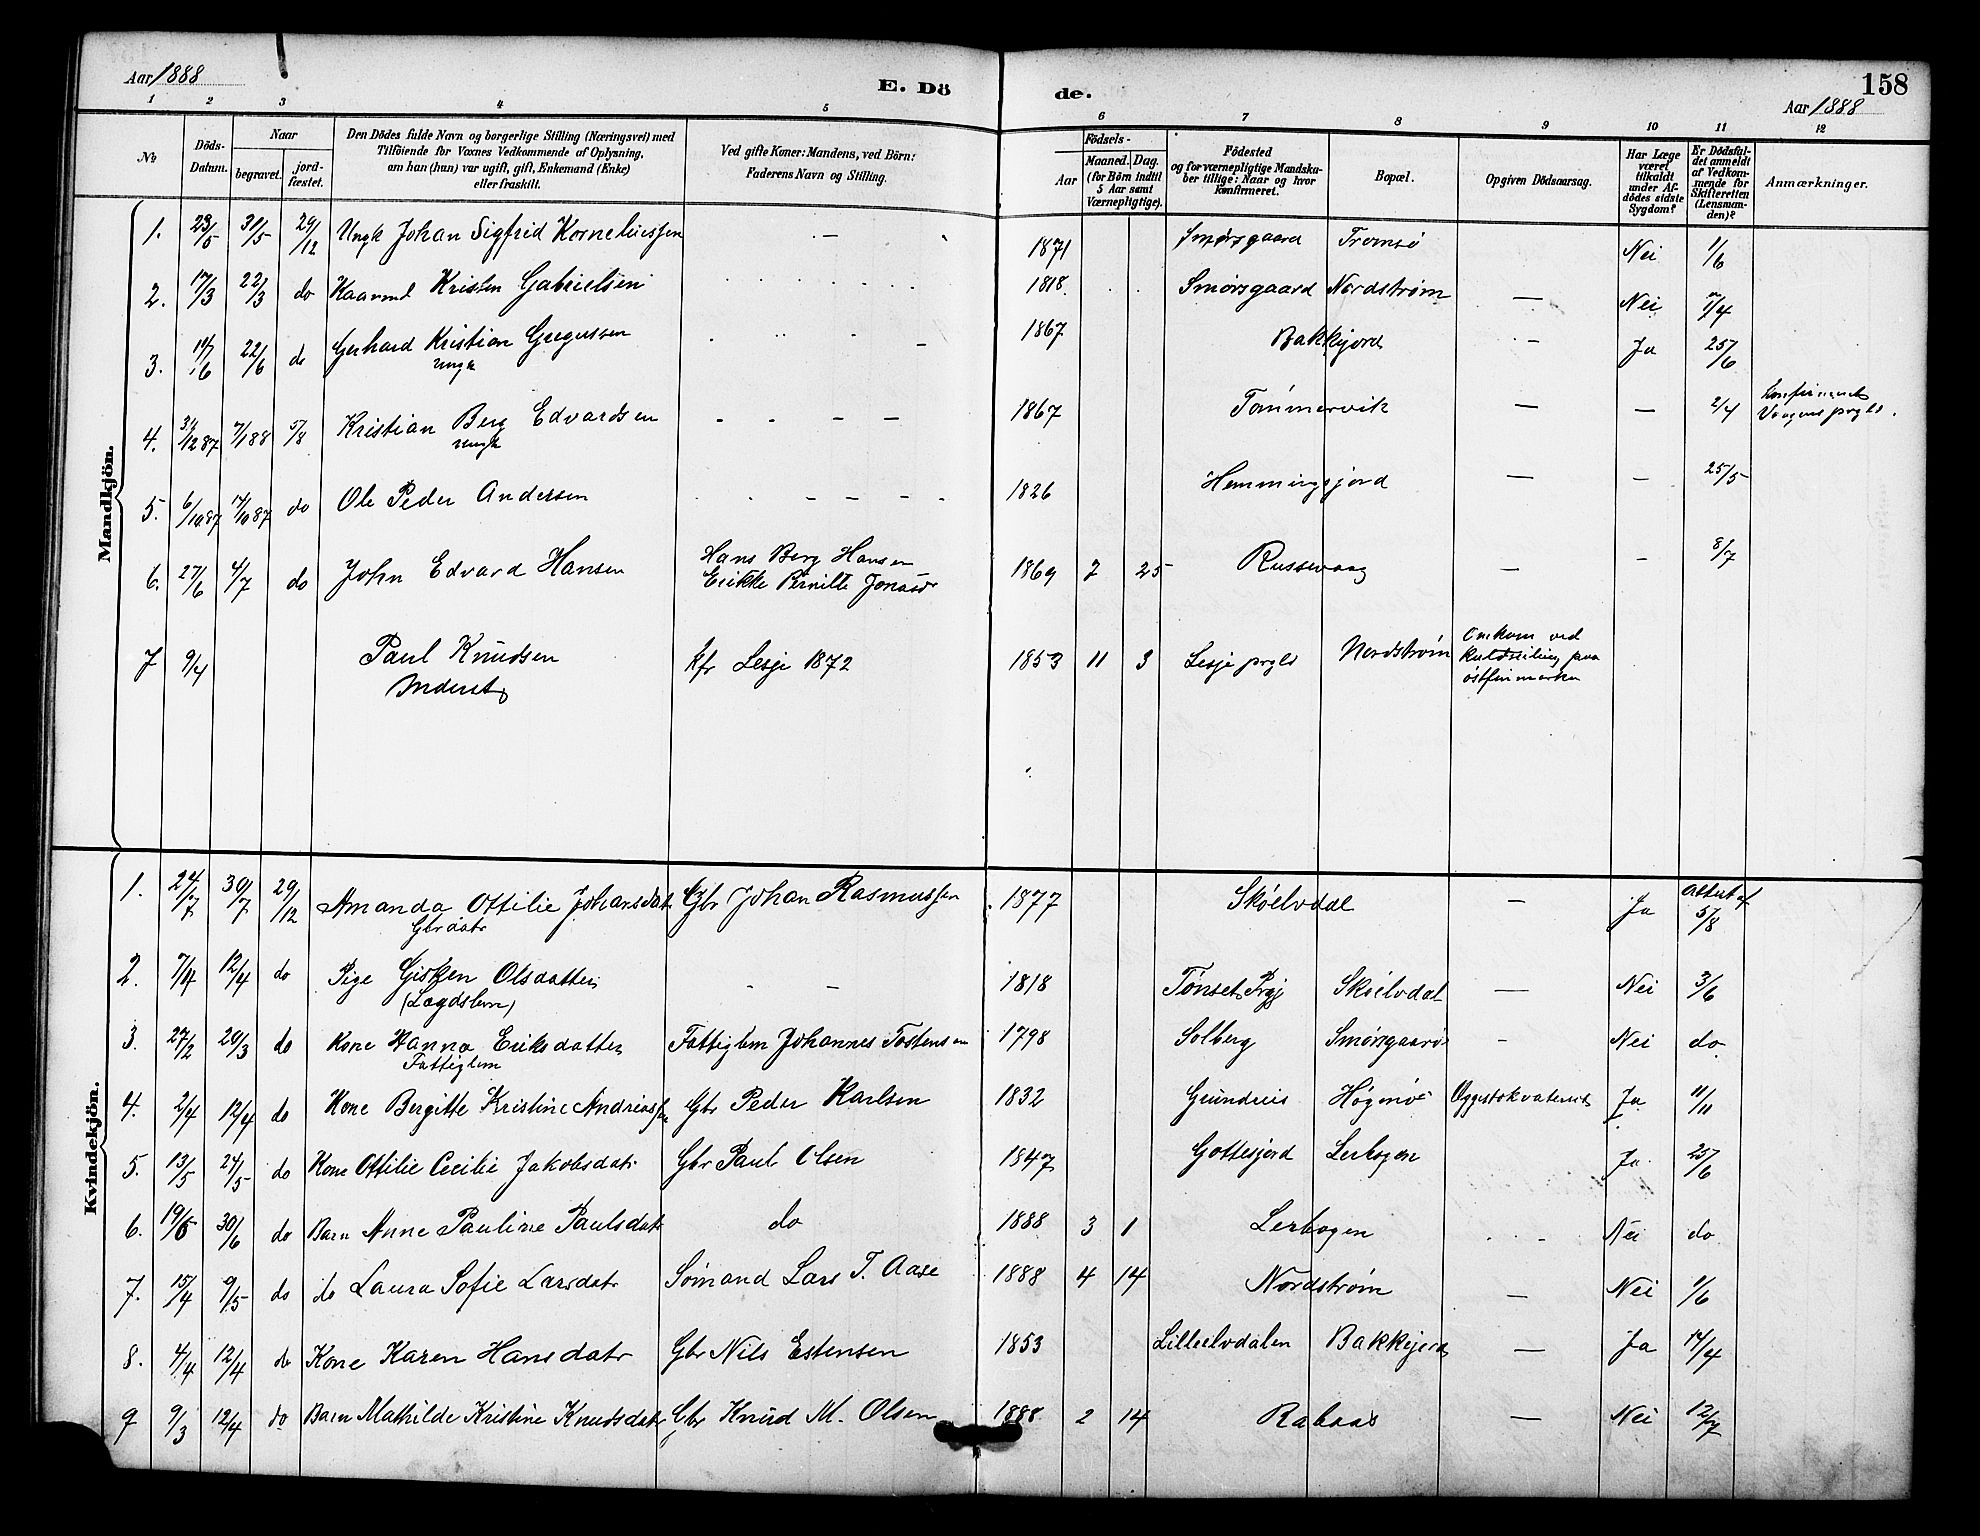 Aar 1888
E. Döde.
158
Aar 1888
1 2 3 4 5 6 7 8 9 10 11 12
No
Döds-Datum.
Naar
begravet.
jordfæstet.
Den Dödes fulde Navn og borgerlige Stilling (Næringsvei) med
Tilföiende for Voxnes Vedkommende af Oplysning,
om han (hun) var ugift, gift, Enkemand (Enke)
eller fraskilt.
Ved gifte Koner: Mandens, ved Börn:
Faderens Navn og Stilling.
Födsels-
Aar
Maaned. Dag.
(for Börn indtil
5 Aar samt
Værnepligtige).
Födested
og for værnepligtige Mandskaber tillige: Naar og hvor konfirmeret.
Bopæl.
Opgiven Dödsaarsag.
Har Læge været tilkaldt under Afdödes sidste Sygdom?
Er Dödsfaldet anmeldt af Vedkommende for Skifteretten (Lensmanden)?
Anmærkninger.
Mandkjön.
1. 23/5 31/5 29/12 Ungk Johan Sigfrid Korneliussen — 1871 Smörsgaard Tromsö Nei 1/6
2. 17/3 22/3 do Kaarmd Kristen Gabrielsen 1818 Smörsgaard Nordström — Nei 7/4
3. 11/6 22/6 do Gerhard Kristian Gregussen — 1867 Bakkjord — Ja 25/6
Ungk
4. 31/12 87 7/1 88 5/8 Kristian Berg Edvardsen — 1867 Tömmervik — — 2/4
Ungk
5. 6/10 87 14/10 87 do Ole Peder Andersen — 1826 Hemmingsjord — — 25/5
6. 27/6 4/7 do John Edvard Hansen Hans Berg Hansen 1869 7 25 Russevaag — — 8/7
Erikke Pernille Jonasdr
7 9/4 Paul Knudsen kfr Lesje 1872 1853 11 3 Lesje prgld Nordström Omkom ved
Inderst östfinmarken
Kvindekjön.
1. 24/7 30/7 29/12 Amanda Ottilie Johansdat Gbr Johan Rasmussen 1877 Skölvdal — Ja 5/8
Gbrdatr
2. 7/4 12/4 do Pige Gisken Olsdatter — — 1818 Tönset Prgj Skölvdal — Nei 3/6
(Lægdslem)
3. 27/2 20/3 do Kone Hanna Eriksdatter Fattiglem Johannes Tostensen 1798 Solberg Smörsgaard — Nei do
Fattiglem
4. 2/4 12/4 do Kone Bergitte Kristine Andreass Gbr Peder Karlsen 1832 Grundreis Högenö Ja 11/11
5. 13/5 24/5 do Kone Ottilie Cecilie Jakobsdatr Gbr Paul Olsen 1847 Gottesjord Lerbogen Ja 25/6
6. 19/6 30/6 do Barn Anne Pauline Paulsdatr do 1888 3 1 Lerbogen Nei do
7. 15/4 9/5 do do Laura Sofie Larsdatr Sömand Lars T. Aase 1888 4 14 Nordström — Nei 1/6
8. 4/4 12/4 do Kone Karen Hansdatr Gbr Nils Estensen 1853 Lilleelvdalen Bakkejord — Ja 14/4
9 9/3 12/4 do Barn Mathilde Kristine Knudsdatr Gbr Knud M. Olsen 1888 2 14 Rabaas — Nei 12/7